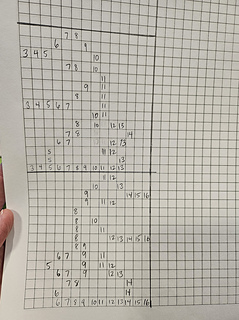 7 8
6 9
3 4 5 10
7 8 10
11
9 11
8 11
3 4 5 6 7 11
10 11
8 10 12 13
7 8 14
6 7 12 13
5 11 12
5 13
3 4 5 6 7 8 9 10 11 12 13 14 15 16
11 12
10 13
9 14 15 16
9
8 10
8 11
8 12 13 14 15 16
8 9
6 7 9 11
5 9 11 12
6 7 9 12 13
7 8 14
6 14
6 7 8 9 10 11 12 13 14 15 16